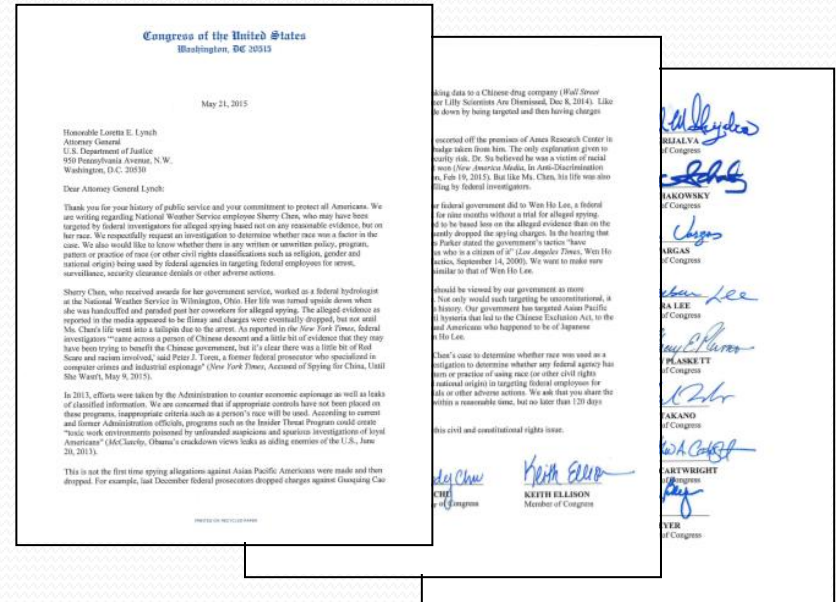 Congress of the United States
Washington, DC 20515
May 21, 2015
Honorable Loretta E. Lynch
Attorney General
U.S. Department of Justice
950 Pennsylvania Avenue, N.W.
Washington, D.C. 20530
Dear Attorney General Lynch:
Thank you for your history of public service and your commitment to protect all Americans. We
are writing regarding National Weather Service employee Sherry Chen, who may have been
targeted by federal investigators for alleged spying based not on any reasonable evidence, but on
her race. We respectfully request an investigation to determine whether race was a factor in the
case. We also would like to know whether there is any written or unwritten policy, program,
pattern or practice of race (or other civil rights classifications such as religion, gender and
national origin) being used by federal agencies in targeting federal employees for arrest,
surveillance, security clearance denials or other adverse actions.
Sherry Chen, who received awards for her government service, worked as a federal hydrologist
at the National Weather Service in Wilmington, Ohio. Her life was turned upside down when
she was handcuffed and paraded past her coworkers for alleged spying. The alleged evidence as
reported in the media appeared to be flimsy and charges were eventually dropped, but not until
Ms. Chen's life went into a tailspin due to the arrest. As reported in the New York Times, federal
investigators "'came across a person of Chinese descent and a little bit of evidence that they may
have been trying to benefit the Chinese government, but it's clear there was a little bit of Red
Scare and racism involved,' said Peter J. Toren, a former federal prosecutor who specialized in
computer crimes and industrial espionage" (New York Times, Accused of Spying for China, Until
She Wasn't, May 9, 2015).
In 2013, efforts were taken by the Administration to counter economic espionage as well as leaks
of classified information. We are concerned that if appropriate controls have not been placed on
these programs, inappropriate criteria such as a person's race will be used. According to current
and former Administration officials, programs such as the Insider Threat Program could create
"toxic work environments poisoned by unfounded suspicions and spurious investigations of loyal
Americans" (McClatchy, Obama's crackdown views leaks as aiding enemies of the U.S., June
20, 2013).
This is not the first time spying allegations against Asian Pacific Americans were made and then
dropped. For example, last December federal prosecutors dropped charges against Guoqing Cao
PRINTED ON RECYCLED PAPER
king data to a Chinese drug company (Wall Street
er Lilly Scientists Are Dismissed, Dec 8, 2014). Like
e down by being targeted and then having charges
escorted off the premises of Ames Research Center in
badge taken from him. The only explanation given to
curity risk. Dr. Su believed he was a victim of racial
won (New America Media, In Anti-Discrimination
n, Feb 19, 2015). But like Ms. Chen, his life was also
filing by federal investigators.
r federal government did to Wen Ho Lee, a federal
for nine months without a trial for alleged spying.
d to be based less on the alleged evidence than on the
ently dropped the spying charges. In the hearing that
s Parker stated the government's tactics "have
us who is a citizen of it" (Los Angeles Times, Wen Ho
actics, September 14, 2000). We want to make sure
similar to that of Wen Ho Lee.
should be viewed by our government as more
. Not only would such targeting be unconstitutional, it
history. Our government has targeted Asian Pacific
l hysteria that led to the Chinese Exclusion Act, to the
and Americans who happened to be of Japanese
n Ho Lee.
Chen's case to determine whether race was used as a
estigation to determine whether any federal agency has
tern or practice of using race (or other civil rights
national origin) in targeting federal employees for
als or other adverse actions. We ask that you share the
within a reasonable time, but no later than 120 days
this civil and constitutional rights issue.
dy Chu
Keith Ellison
CHU
KEITH ELLISON
of Congress
Member of Congress
RIJALVA
of Congress
HAKOWSKY
of Congress
Vargas
ARGAS
of Congress
Lee
RA LEE
of Congress
PLASKETT
of Congress
TAKANO
of Congress
CARTWRIGHT
of Congress
YER
of Congress